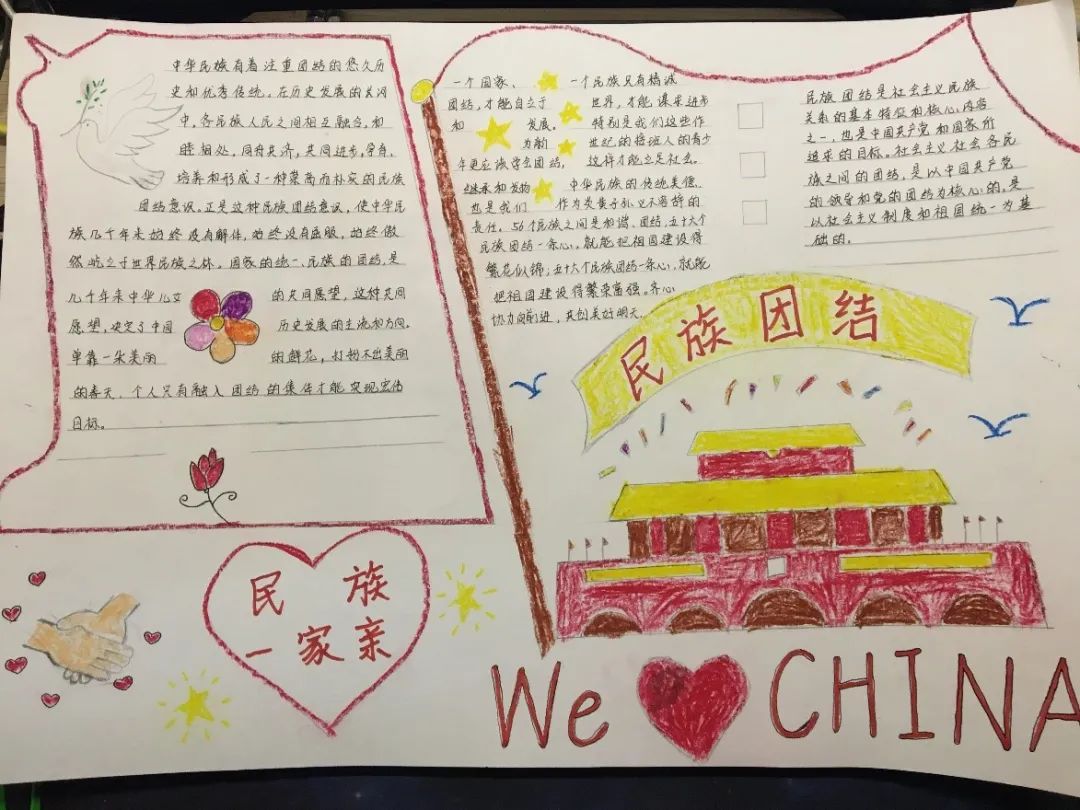 中华民族有着注重团结的悠久历
史和优秀传统。在历史发展的长河
中,各民族人民之间相互融合,和
睦相处,同舟共济,共同进步,孕育、
培养和形成了一种崇高而朴实的民族
团结意识。正是这种民族团结意识,使中华民
族几千年来始终没有解体,始终没有屈服,始终傲
然屹立于世界民族之林。国家的统一、民族的团结,是
几千年来中华儿女 的共同愿望,这种共同
愿望,决定了中国 历史发展的主流和方向。
单靠一朵美丽 的鲜花,打扮不出美丽
的春天,个人只有融入团结的集体才能实现宏伟
目标。
一个国家、 一个民族只有精诚
团结,才能自立于 世界,才能谋求进步
和 发展。 特别是我们这些作
为新 世纪的接班人的青少
年更应该学会团结, 这样才能立足社会。
继承和发扬 中华民族的传统美德,
也是我们 作为炎黄子孙义不容辞的
责任。56个民族之间是和谐、团结,五十六个
民族团结一条心,就能把祖国建设得
繁花似锦;五十六个民族团结一条心,就能
把祖国建设得繁荣富强。齐心
协力向前进,共创美好明天。
民族团结是社会主义民族
关系的基本特征和核心内容
之一,也是中国共产党和国家所
追求的目标。社会主义社会各民
族之间的团结,是以中国共产党
的领导和党的团结为核心的,是
以社会主义制度和祖国统一为基
础的。
民族团结
民 族
一家亲
We CHINA